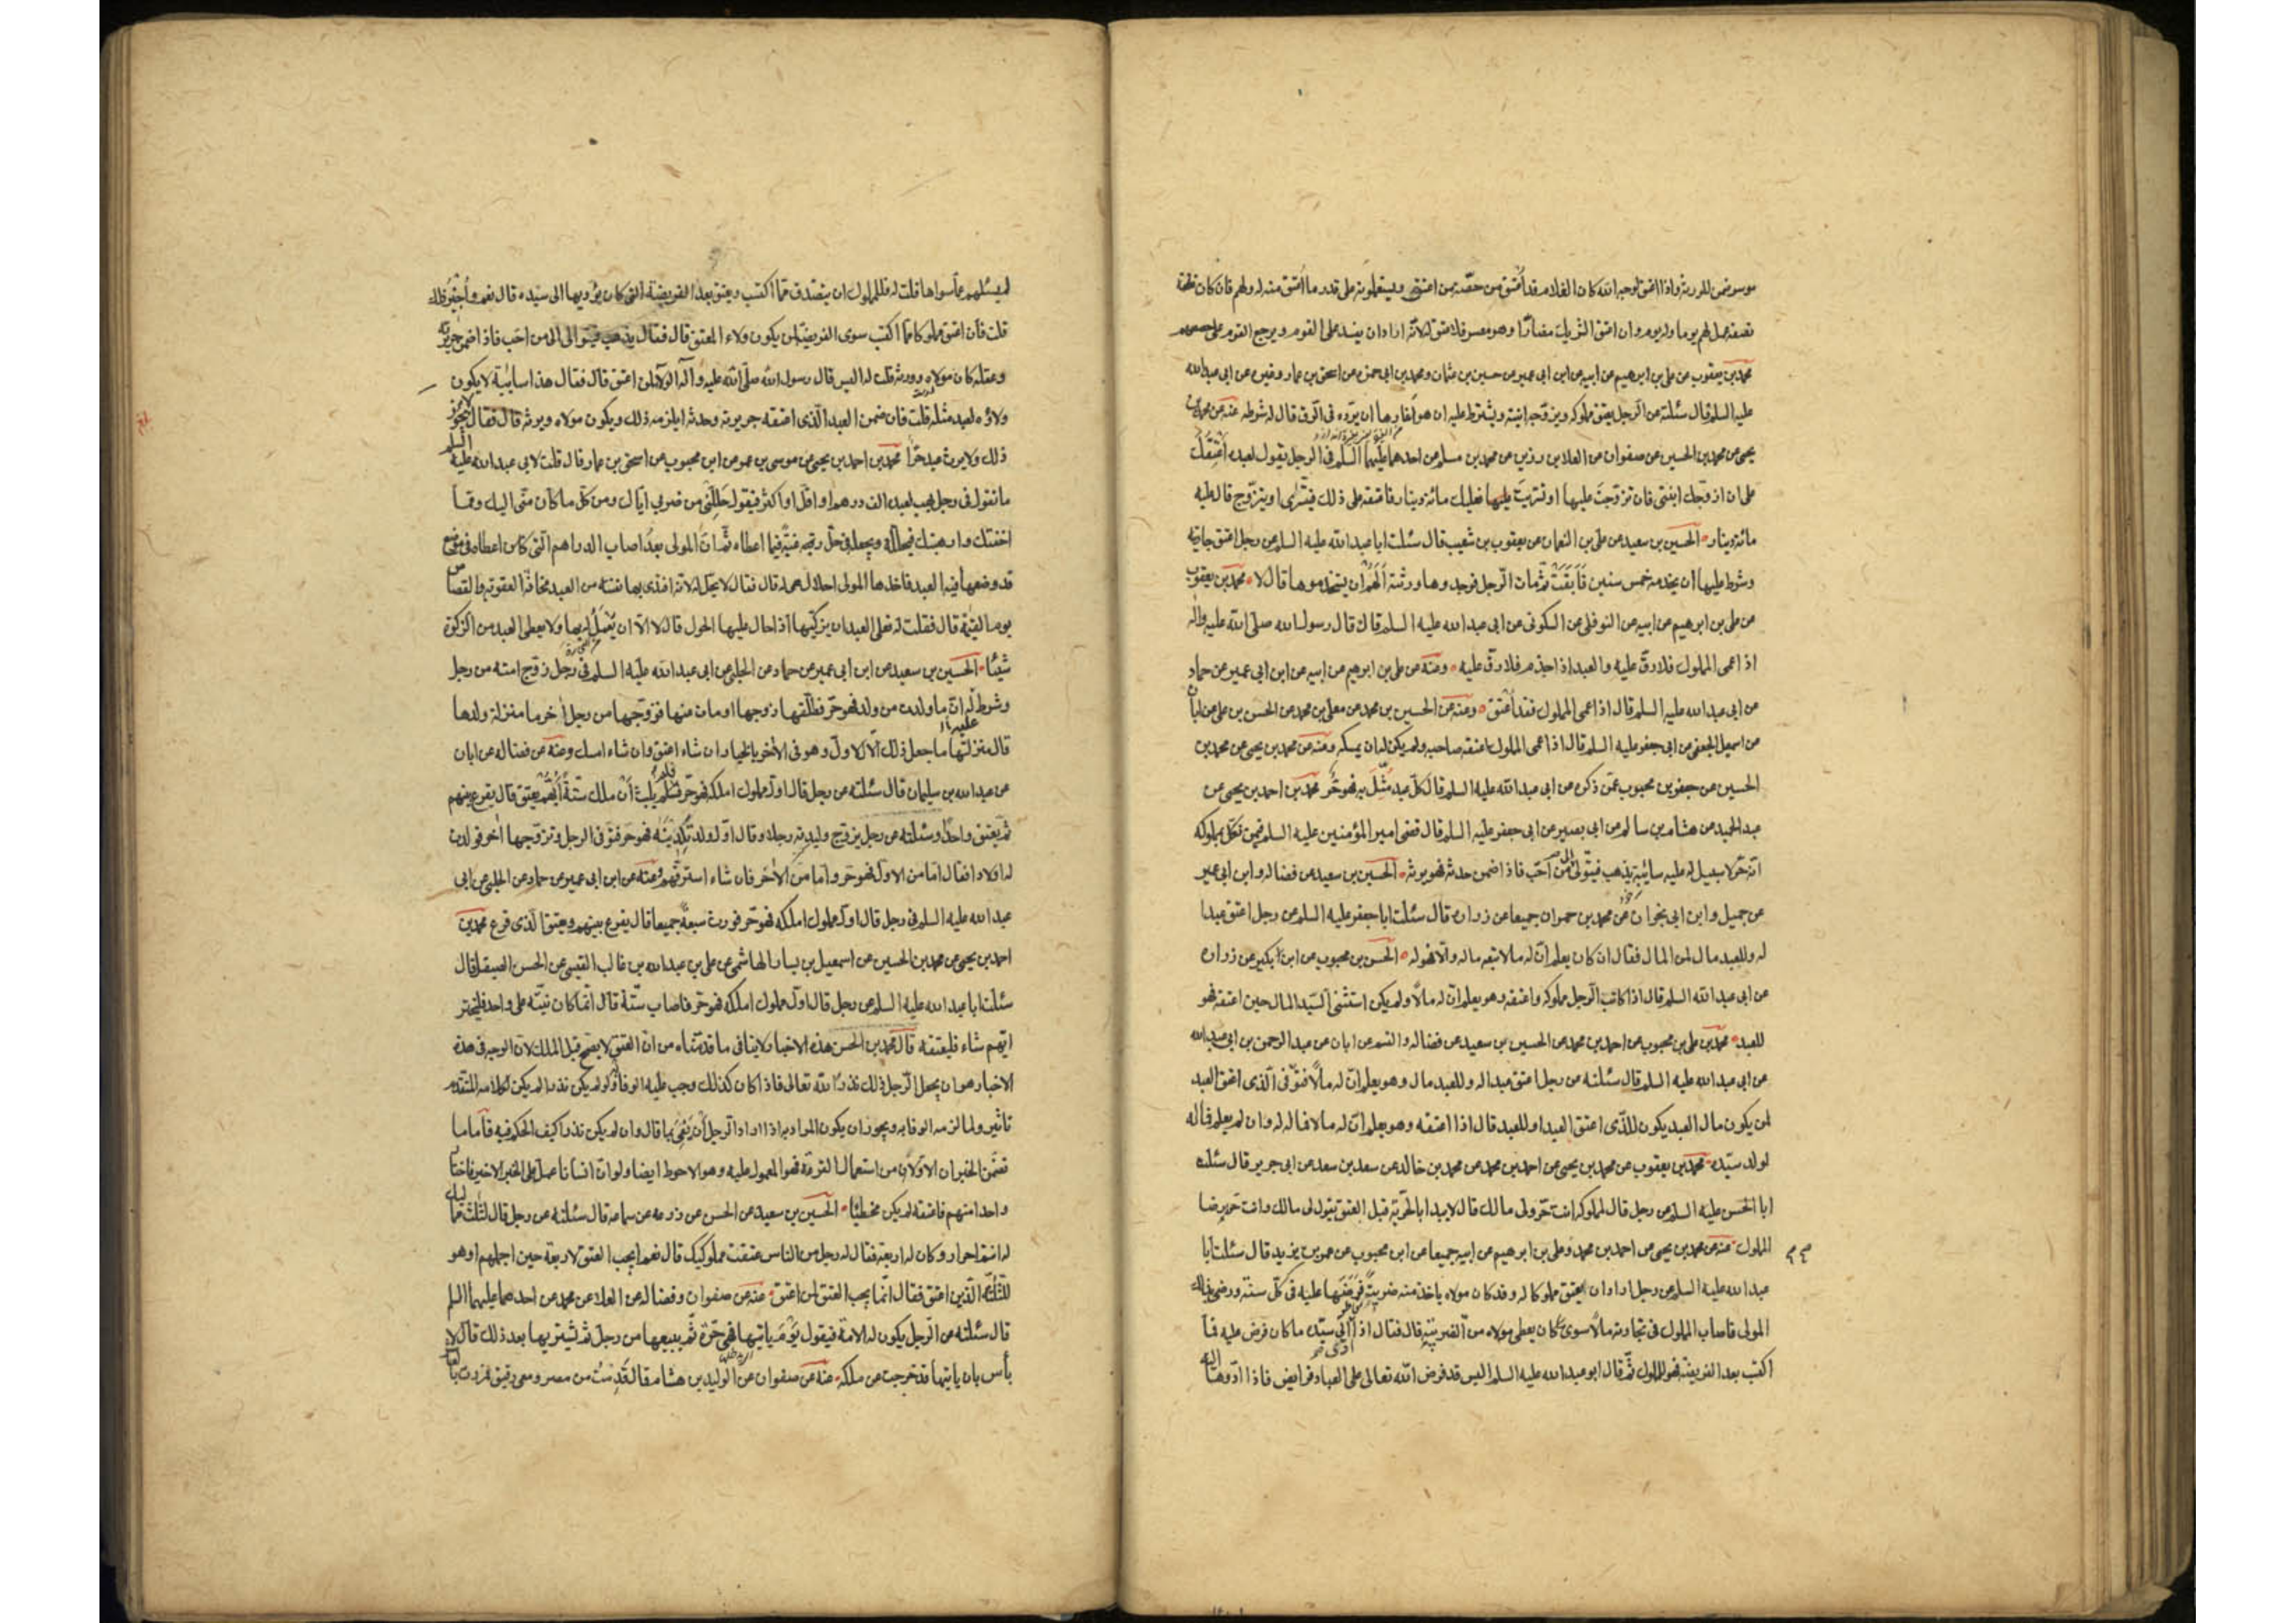 موسر ضمن للورثة واذا اعتق لوجه الله كان الغلام قد أعتق من حصة من اعتق ويستعملونه على قدر ما أعتق منه له ولهم فان كان نصفه
نصفه عمل لهم يوما وله يوم وان اعتق الشريك مضارّا وهو معسر فلا عتق له لانّه اراد ان يفسد على القوم ويرجع القوم على حصصهم
محمد بن يعقوب عن على بن ابرهيم عن ابيه عن ابن ابى عمير عن حسين بن عثمان ومحمد بن ابى حمزه عن اسحق بن عمار وغيره عن ابى عبد الله
عليه السلم قال سئلته عن الرجل يعتق مملوكه ويزوّجه ابنته ويشترط عليه ان هو أغارها ان يردّه فى الرق قال له شرطه عنه عن محمد بن
يحيى عن محمد بن الحسين عن صفوان عن العلا بن رزين عن محمد بن مسلم عن احدهما عليهما السلم فى الرجل يقول لعبده أعتقك
على ان ازوّجك ابنتى فان تزوجت عليها او تسريت عليها فعليك مائة دينار فاعتقه على ذلك فيتسرّى او يتزوّج قال عليه
مائة دينار الحسين بن سعيد عن على بن النعمان عن يعقوب بن شعيب قال سئلت ابا عبد الله عليه السلم عن رجل اعتق جاريته
وشرط عليها ان يخدمه خمس سنين فأبقت ثم مات الرجل فوجدوها ورثته ألهم ان يستخدموها قال لا محمد بن يعقوب
عن على بن ابرهيم عن ابيه عن النوفلى عن السكونى عن ابى عبد الله عليه السلم قال قال رسول الله صلى الله عليه واله
اذا عمى المملوك فلا رقّ عليه والعبد اذا جذم فلا رقّ عليه ومنه عن على بن ابرهيم عن ابيه عن ابن ابى عمير عن حماد
عن ابى عبد الله عليه السلم قال اذا عمى المملوك فقد أعتق ومنه عن الحسين بن محمد عن معلى بن محمد عن الحسن بن على عن ابان
عن اسمعيل الجعفى عن ابى جعفر عليه السلم قال اذا عمى المملوك اعتقه صاحبه ولم يكن له ان يمسكه ومنه عن محمد بن يحيى عن محمد بن
الحسين عن جعفر بن محبوب عمّن ذكره عن ابى عبد الله عليه السلم قال كلّ عبد مثّل به فهو حرّ محمد بن احمد بن يحيى عن
عبد الحميد عن هشام بن سالم عن ابى بصير عن ابى جعفر عليه السلم قال قضى امير المؤمنين عليه السلم فيمن نكل بمملوكه
انّه حرّ لا سبيل له عليه سائبة يذهب فيتولّى الى من أحّب فاذا ضمن حدثه فهو يرثه الحسين بن سعيد عن فضاله وابن ابى عمير
عن جميل وابن ابى نجران عن محمد بن حمران جميعا عن زراره قال سئلت ابا جعفر عليه السلم عن رجل اعتق عبدا
له وللعبد مال لمن المال فقال ان كان يعلم انّ له مالا تبعه ماله والّا فهو له الحسن بن محبوب عن ابن بكير عن زراره
عن ابى عبد الله السلم قال اذا كاتب الرجل مملوكه واعتقه وهو يعلم انّ له مالاً ولم يكن استثنى السّيد المال حين اعتقه فهو
للعبد محمد بن على بن محبوب عن احمد بن محمد عن الحسين بن سعيد عن فضاله والقسم عن ابان عن عبد الرحمن بن ابى عبد الله
عن ابى عبد الله عليه السلم قال سئلته عن رجل اعتق عبدا له وللعبد مال وهو يعلم انّ له مالاً فتوفّى الّذى اعتق العبد
لمن يكون مال العبد يكون للذّى اعتق العبد او للعبد قال اذا اعتقه وهو يعلم انّ له مالا فماله له وان لم يعلم فماله
لولد سيّده محمد بن يعقوب عن محمد بن يحيى عن احمد بن محمد عن محمد بن خالد عن سعد بن سعد عن ابى جرير قال سئلت
ابا الحسن عليه السلم عن رجل قال لمملوكه انت حرّ ولى مالك قال لا يبدا بالحرّية قبل العتق يقول لى مالك وانت حرّ برضا
المملوك عنه عن محمد بن يحيى عن احمد بن محمد وعلى بن ابرهيم عن ابيه جميعا عن ابن محبوب عن عمر بن يزيد قال سئلت ابا
عبد الله عليه السلم عن رجل اراد ان يعتق مملوكا له وقد كان مولاه ياخذ منه ضريبة فرضها عليه فى كلّ سنة ورضى بذلك
المولى فاصاب المملوك فى تجارته مالاً سوى ما كان يعطى مولاه من الضريبة قال فقال اذا ادّى الى سيّده ما كان فرض عليه فما
اكتسب بعد الفريضة فهو للمملوك ثمّ قال ابو عبد الله عليه السلم اليس قد فرض الله تعالى على العباد فرايض فاذا ادّوها اليه
لم يسئلهم عمّا سواها قلت له فللمملوك ان يتصدق ممّا اكتسب ويعتق بعد الفريضة التى كان يؤديها الى سيّده قال نعم وأجر ذلك له
قلت فان اعتق مملوكا ممّا اكتسب سوى الفريضة لمن يكون ولاء المعتق قال فقال يذهب فيتوالى الى من احب فاذا ضمن جريرته
وعقله كان مولاه وورثه قلت له اليس قال رسول الله صلّى الله عليه وآله الولاء لمن اعتق قال فقال هذا سايبة لا يكون
ولاؤه لعبد مثله قلت فان ضمن العبد الّذى اعتقه جريرته وحدثه ايلزمه ذلك ويكون مولاه ويرثه قال فقال لا يجوز
ذلك ولا يرث عبد حرّا محمد بن احمد بن يحيى عن موسى بن عمر عن ابن محبوب عن اسحق بن عمار قال قلت لابى عبد الله عليه السلم
ما تقول فى رجل يهب لعبده الف درهم او اقل او اكثر فيقول حللّنى من ضربى ايّاك ومن كلّ ما كان منّى اليك وممّا
اخفتك وارهبتك فيحلّله ويجعله فى حلّ رغبة فيما اعطاه ثمّ انّ المولى بعدُ اصاب الدراهم الّتى كان اعطاه فى موضع
قد وضعها فيه العبد فاخذها المولى احلال هى له قال فقال لا يحّل له لانّه افتدى بها نفسه من العبد مخافة العقوبة والقصاص
يوم القيمة قال فقلت له فعلى العبد ان يزكّيها اذا حال عليها الحول قال لا الّا ان يعمل له بها ولا يعطى العبد من الزكوة
شيئا الحسين بن سعيد عن ابن ابى عمير عن حماد عن الحلبى عن ابى عبد الله عليه السلم فى رجل زوّج امته من رجل
وشرط له انّ ما ولدت من ولد فهو حرّ فطلّقها زوجها او مات عنها فزوّجها من رجل اخر ما منزلة ولدها
قال منزلتها ما جعل ذلك الّا للاول وهو فى الآخر بالخيار ان شاء اعتق وان شاء امسك ومنه عن فضاله عن ابان
عن عبد الله بن سليمان قال سئلته عن رجل قال اول مملوك املكه فهو حرّ فلم يلبث أن ملك ستّة أيّهم يعتق قال يقرع بينهم
ثمّ يعتق واحدًا وسئلته عن رجل يزوّج وليدته رجلا وقال اوّل ولد تلدينه فهو حر فتوفى الرجل وتزوّجها آخر فولدت
له اولادا فقال امّا من الاول فهو حر وامّا من الآخر فان شاء استرقّهم وعنه عن ابن ابى عمير عن حماد عن الحلبى عن ابى
عبد الله عليه السلم فى رجل قال اول مملوك املكه فهو حرّ فورث سبعةً جميعا قال يقرع بينهم ويعتق الذى قرع محمد بن
احمد بن يحيى عن محمد بن الحسين عن اسمعيل بن يسار الهاشمى عن على بن عبد الله بن غالب القيسى عن الحسن الصيقل قال
سئلت ابا عبد الله عليه السلم عن رجل قال اول مملوك املكه فهو حرّ فاصاب ستّة قال انّما كان نيّته على واحد فليختر
ايّهم شاء فليعتقه قال محمد بن الحسن هذه الاخبار لا ينافى ما قدمّناه من انّ العتق لا يصح قبل الملك لانّ الوجه فى هذه
الاخبار هو ان يجعل الّرجل ذلك نذرًا لله تعالى فاذا كان كذلك وجب عليه الوفا ولو لم يكن نذرا لم يكن لكلامه المتقدم
تاثير ولما لزمه الوفا به ويجوز ان يكون المراد به اذا اراد الّرجل أن يفى بما قال وان لم يكن نذرا كيف الحكم فيه فأما ما
تضمّن الخبران الاوّلان من استعمال القرعة فهو المعمول عليه وهو الاحوط ايضا ولو انّ انسانا عمل على الخبر الاخير فاختار
واحدا منهم فاعتقه لم يكن مخطيًا الحسين بن سعيد عن الحسن عن زرعه عن سماعه قال سئلته عن رجل قال لثلثة مماليك
له انتم احرار وكان له اربعة فقال له رجل من الناس عتقت مملوكيك قال نعم ايجب العتق لاربعة حين اجملهم او هو
للثلثة الّذين اعتق فقال انّما يجب العتق لمن اعتق عنه عن صفوان وفضاله عن العلا عن محمد عن احدهما عليهما السلم
قال سئلته عن الّرجل يكون له الامة فيقول يوم ياتيها فهى حرّة ثمّ يبيعها من رجل ثمّ يشتريها بعد ذلك قال لا
بأس بان ياتيها قد خرجت عن ملكه عنه عن صفوان عن الوليد بن هشام قال قدمت من مصر ومعى رقيق فمررت